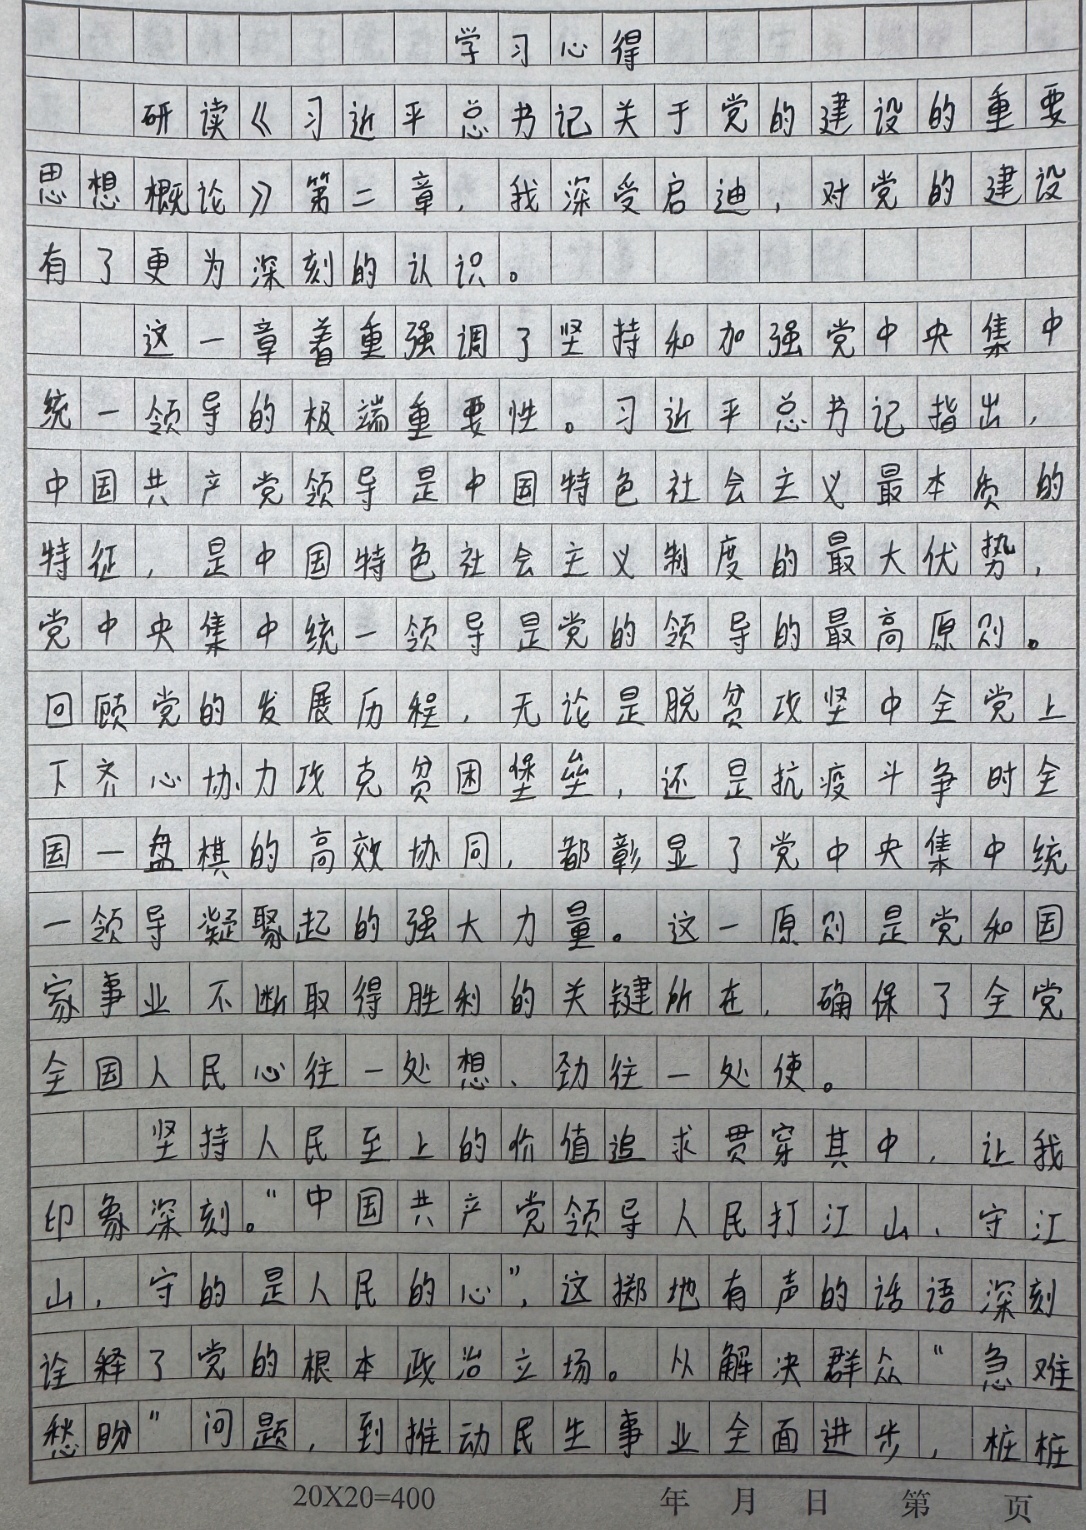 学习心得
研读《习近平总书记关于党的建设的重要
思想概论》第二章,我深受启迪,对党的建设
有了更为深刻的认识。
这一章着重强调了坚持和加强党中央集中
统一领导的极端重要性。习近平总书记指出,
中国共产党领导是中国特色社会主义最本质的
特征,是中国特色社会主义制度的最大优势,
党中央集中统一领导是党的领导的最高原则。
回顾党的发展历程,无论是脱贫攻坚中全党上
下齐心协力攻克贫困堡垒,还是抗疫斗争时全
国一盘棋的高效协同,都彰显了党中央集中统
一领导凝聚起的强大力量。这一原则是党和国
家事业不断取得胜利的关键所在,确保了全党
全国人民心往一处想、劲往一处使。
坚持人民至上的价值追求贯穿其中,让我
印象深刻。“中国共产党领导人民打江山、守江
山,守的是人民的心”,这掷地有声的话语深刻
诠释了党的根本政治立场。从解决群众“急难
愁盼”问题,到推动民生事业全面进步,桩桩
20X20=400 年 月 日 第 页